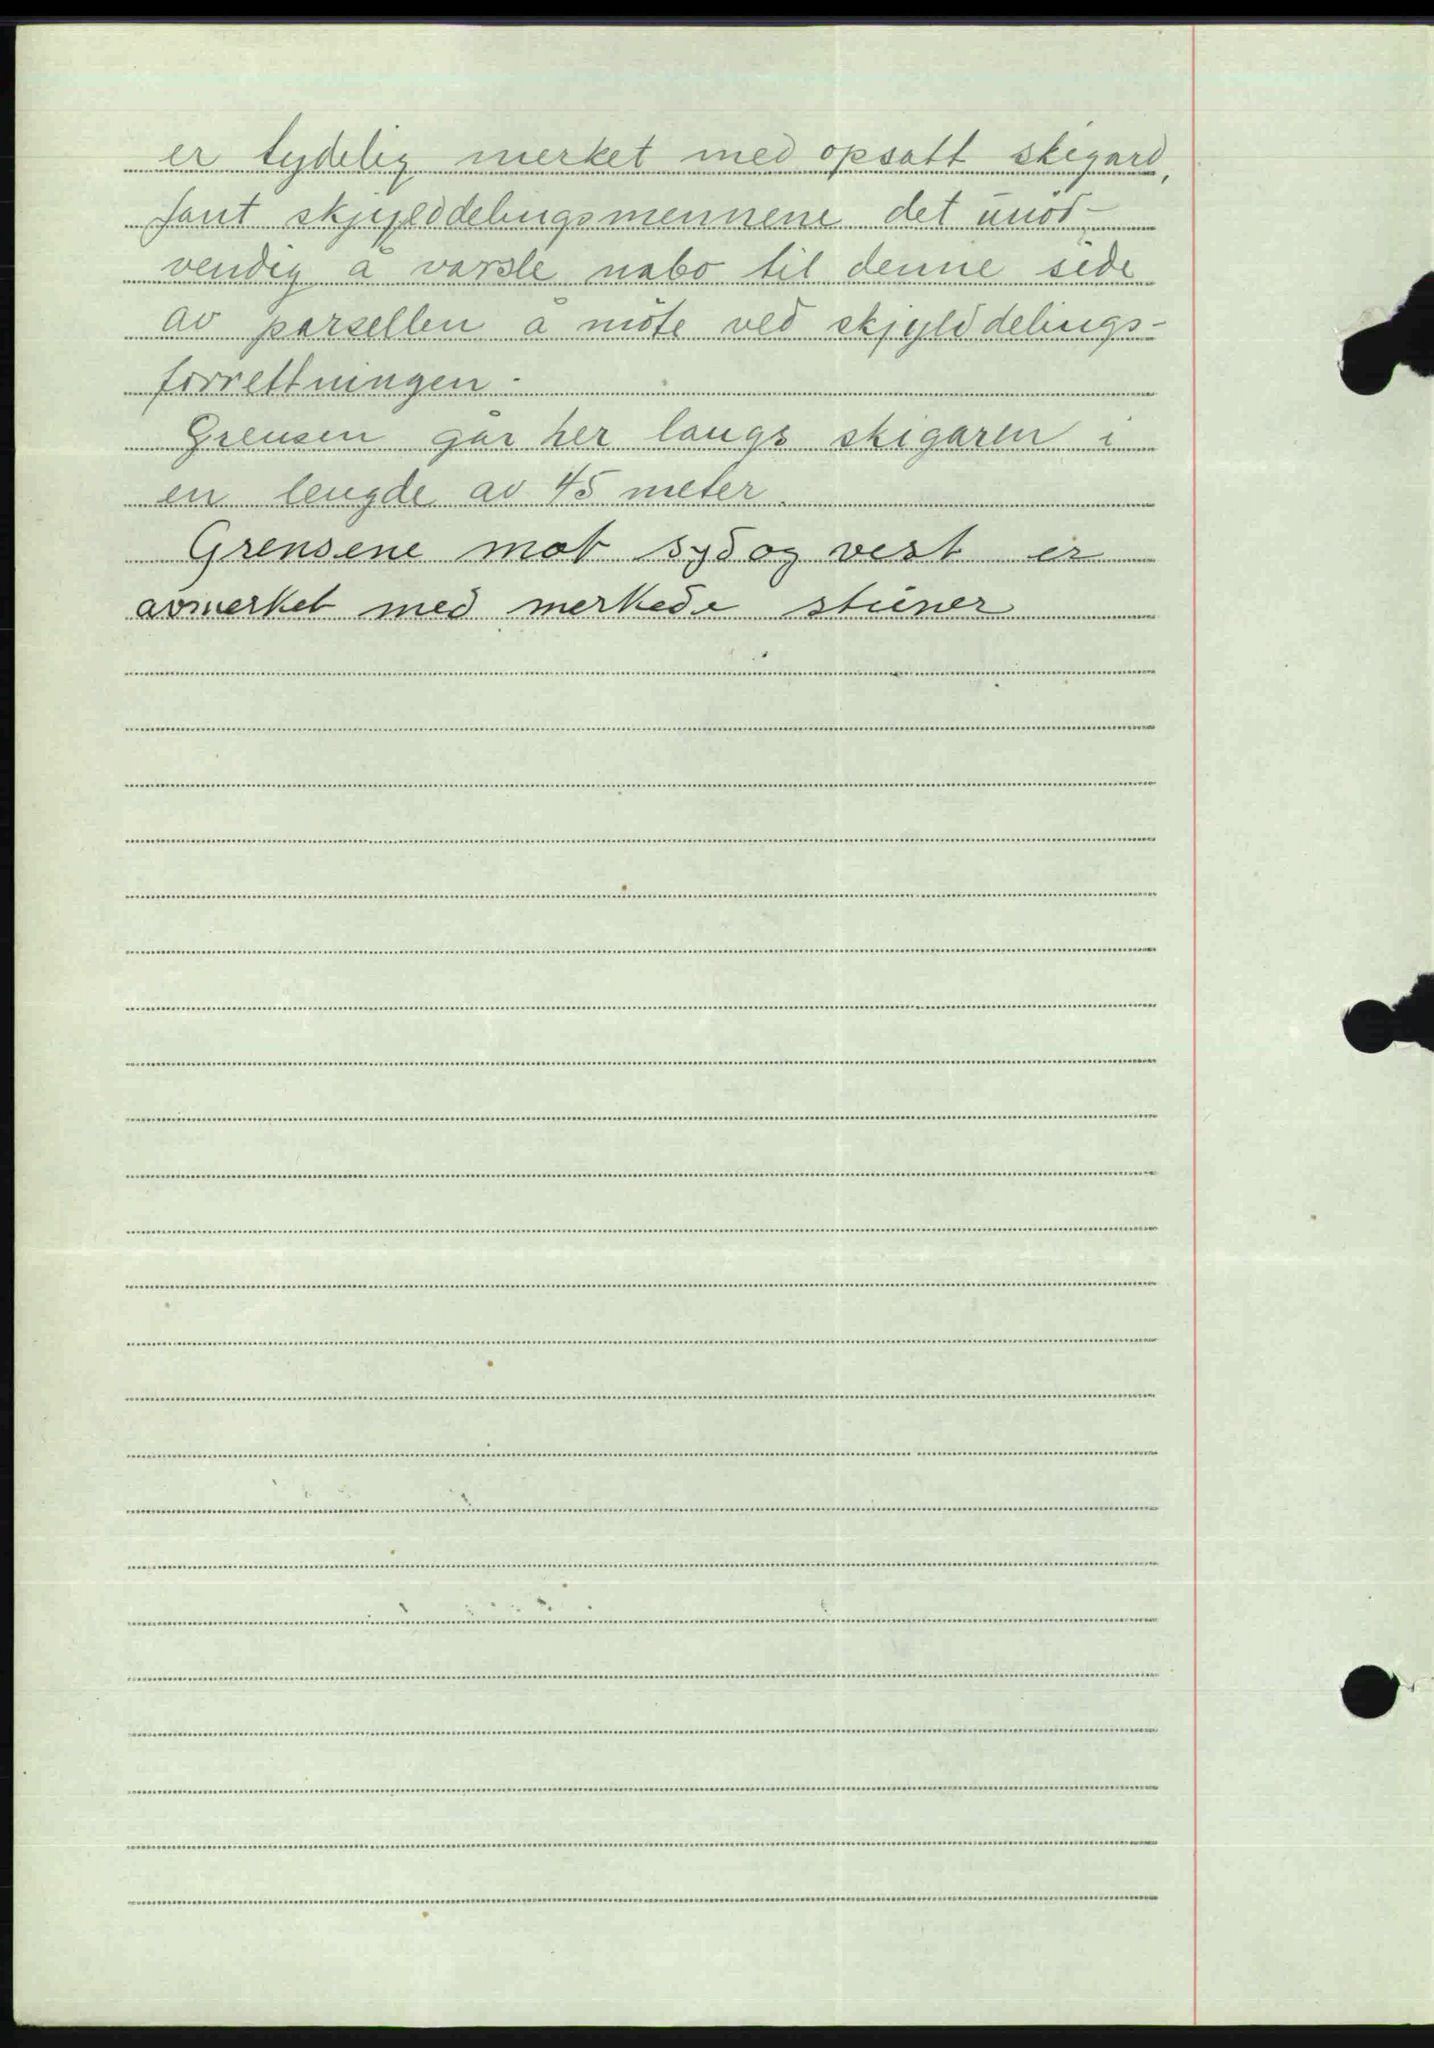 er tydelig merket med opsatt skigard,
fant skjylddelingsmennene det unöd-
vendig å varsle nabo til denne side
av parsellen å möte ved skjylddelings-
forrettningen.
Grensen går her langs skigaren i
en lengde av 45 meter.
Grensene mot syd og vest er
avmerket med merkede steiner